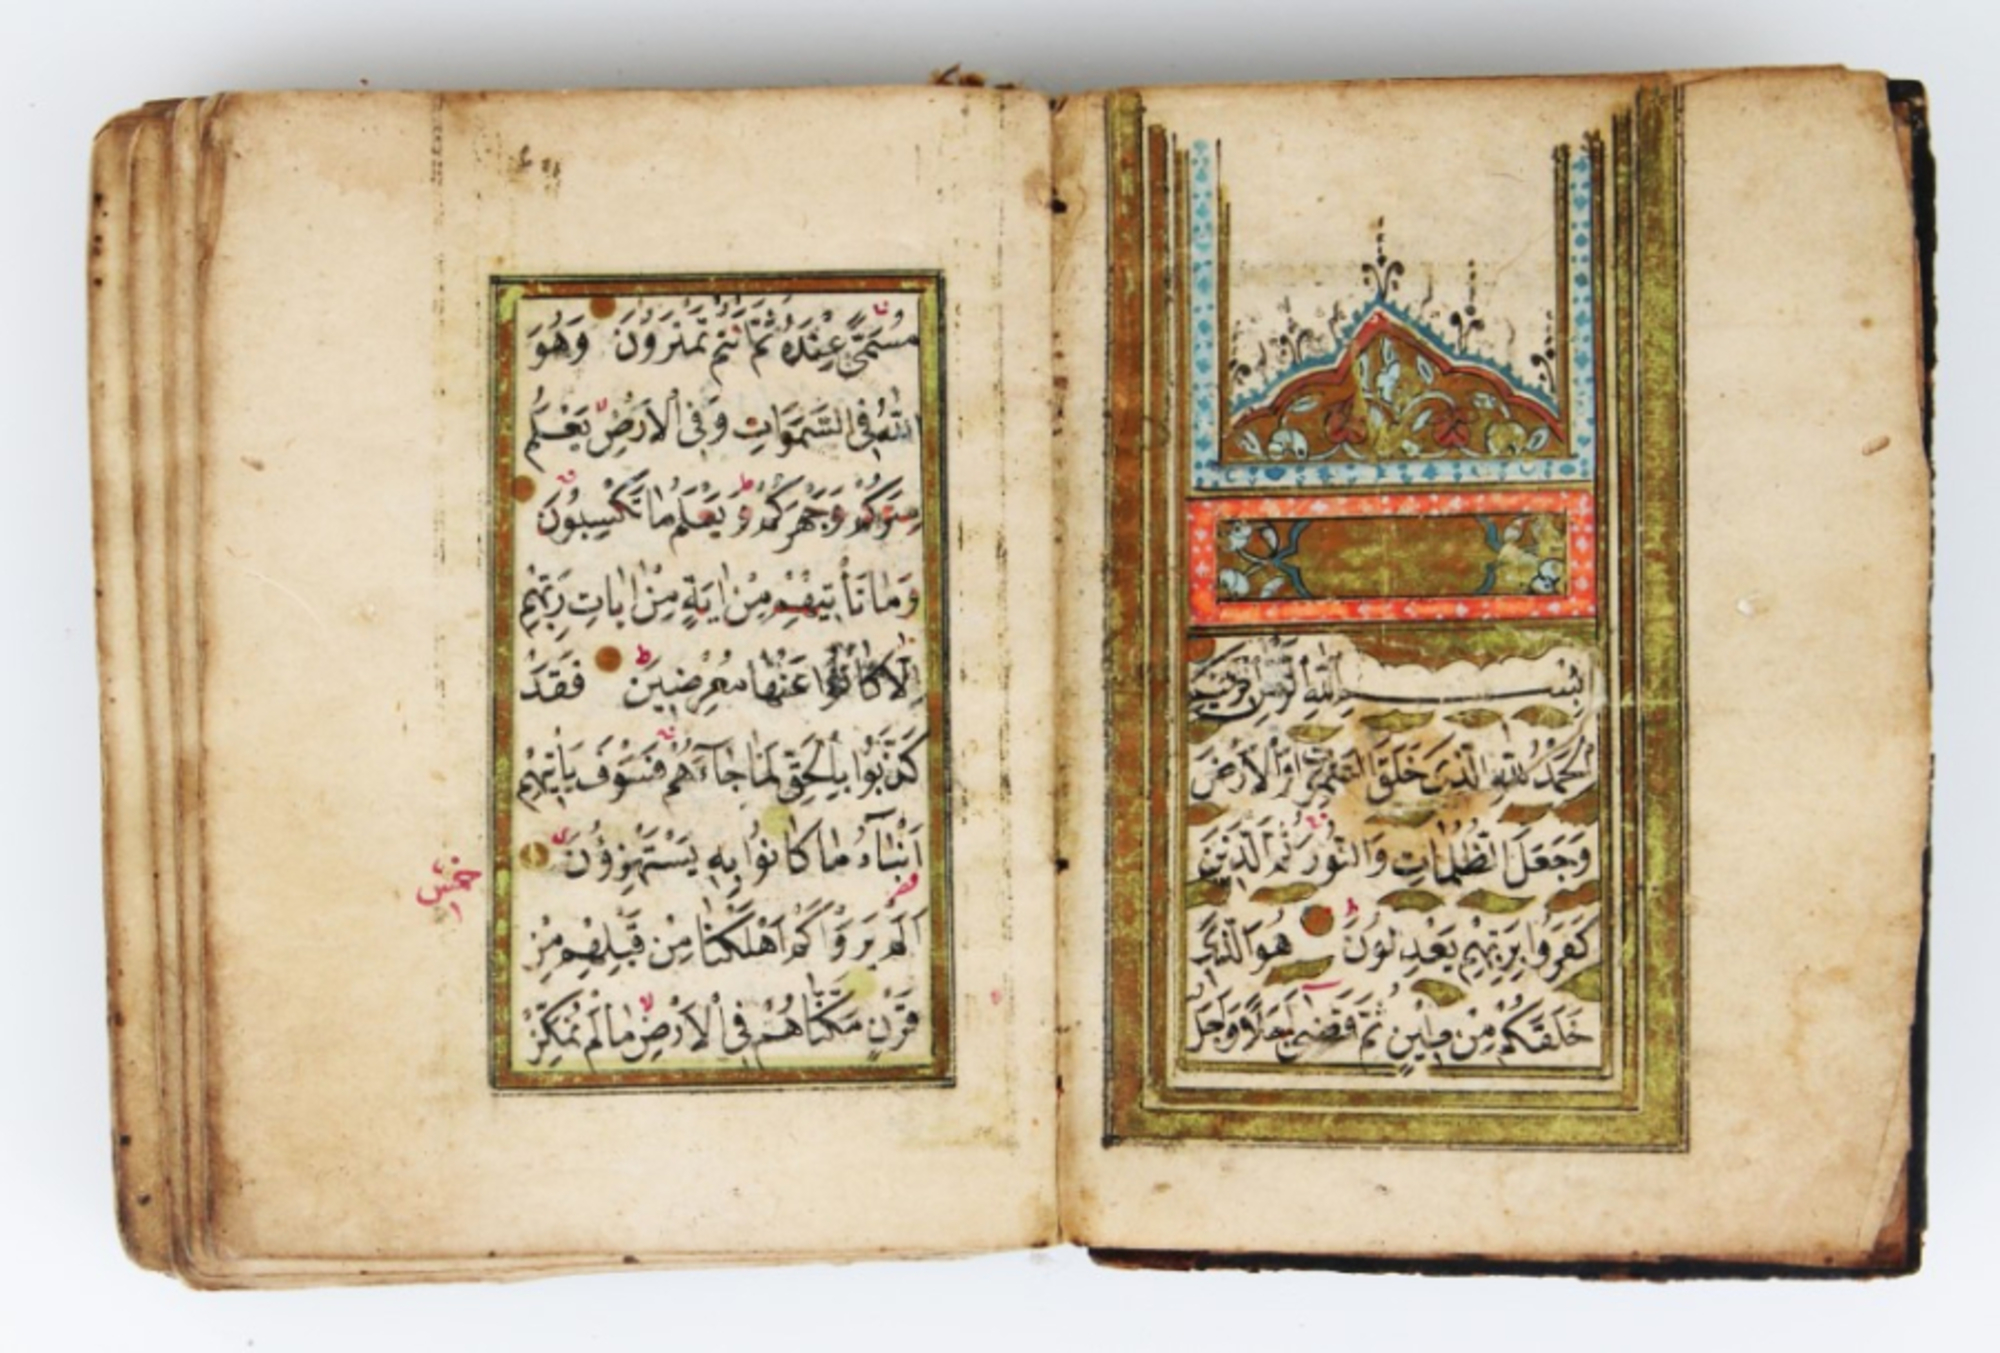 بِسْمِ اللّٰهِ الرَّحْمٰنِ الرَّحِيمِ
اَلْحَمْدُ لِلّٰهِ الَّذِى خَلَقَ السَّمٰوَاتِ وَالْاَرْضَ
وَجَعَلَ الظُّلُمَاتِ وَالنُّورَ ثُمَّ الَّذِينَ
كَفَرُوا بِرَبِّهِمْ يَعْدِلُونَ هُوَ الَّذِى
خَلَقَكُمْ مِنْ طِينٍ ثُمَّ قَضٰى اَجَلًا وَاَجَلٌ
مُسَمًّى عِنْدَهُ ثُمَّ اَنْتُمْ تَمْتَرُونَ وَهُوَ
اللّٰهُ فِى السَّمَوَاتِ وَفِى الْاَرْضِ يَعْلَمُ
سِرَّكُمْ وَجَهْرَكُمْ وَيَعْلَمُ مَا تَكْسِبُونَ
وَمَا تَأْتِيهِمْ مِنْ اٰيَةٍ مِنْ اٰيَاتِ رَبِّهِمْ
اِلَّا كَانُوا عَنْهَا مُعْرِضِينَ فَقَدْ
كَذَّبُوا بِالْحَقِّ لَمَّا جَاءَهُمْ فَسَوْفَ يَأْتِيهِمْ
اَنْبَاءُ مَا كَانُوا بِهِ يَسْتَهْزِؤُنَ
اَلَمْ يَرَوْا كَمْ اَهْلَكْنَا مِنْ قَبْلِهِمْ مِنْ
قَرْنٍ مَكَّنَّاهُمْ فِى الْاَرْضِ مَا لَمْ نُمَكِّنْ